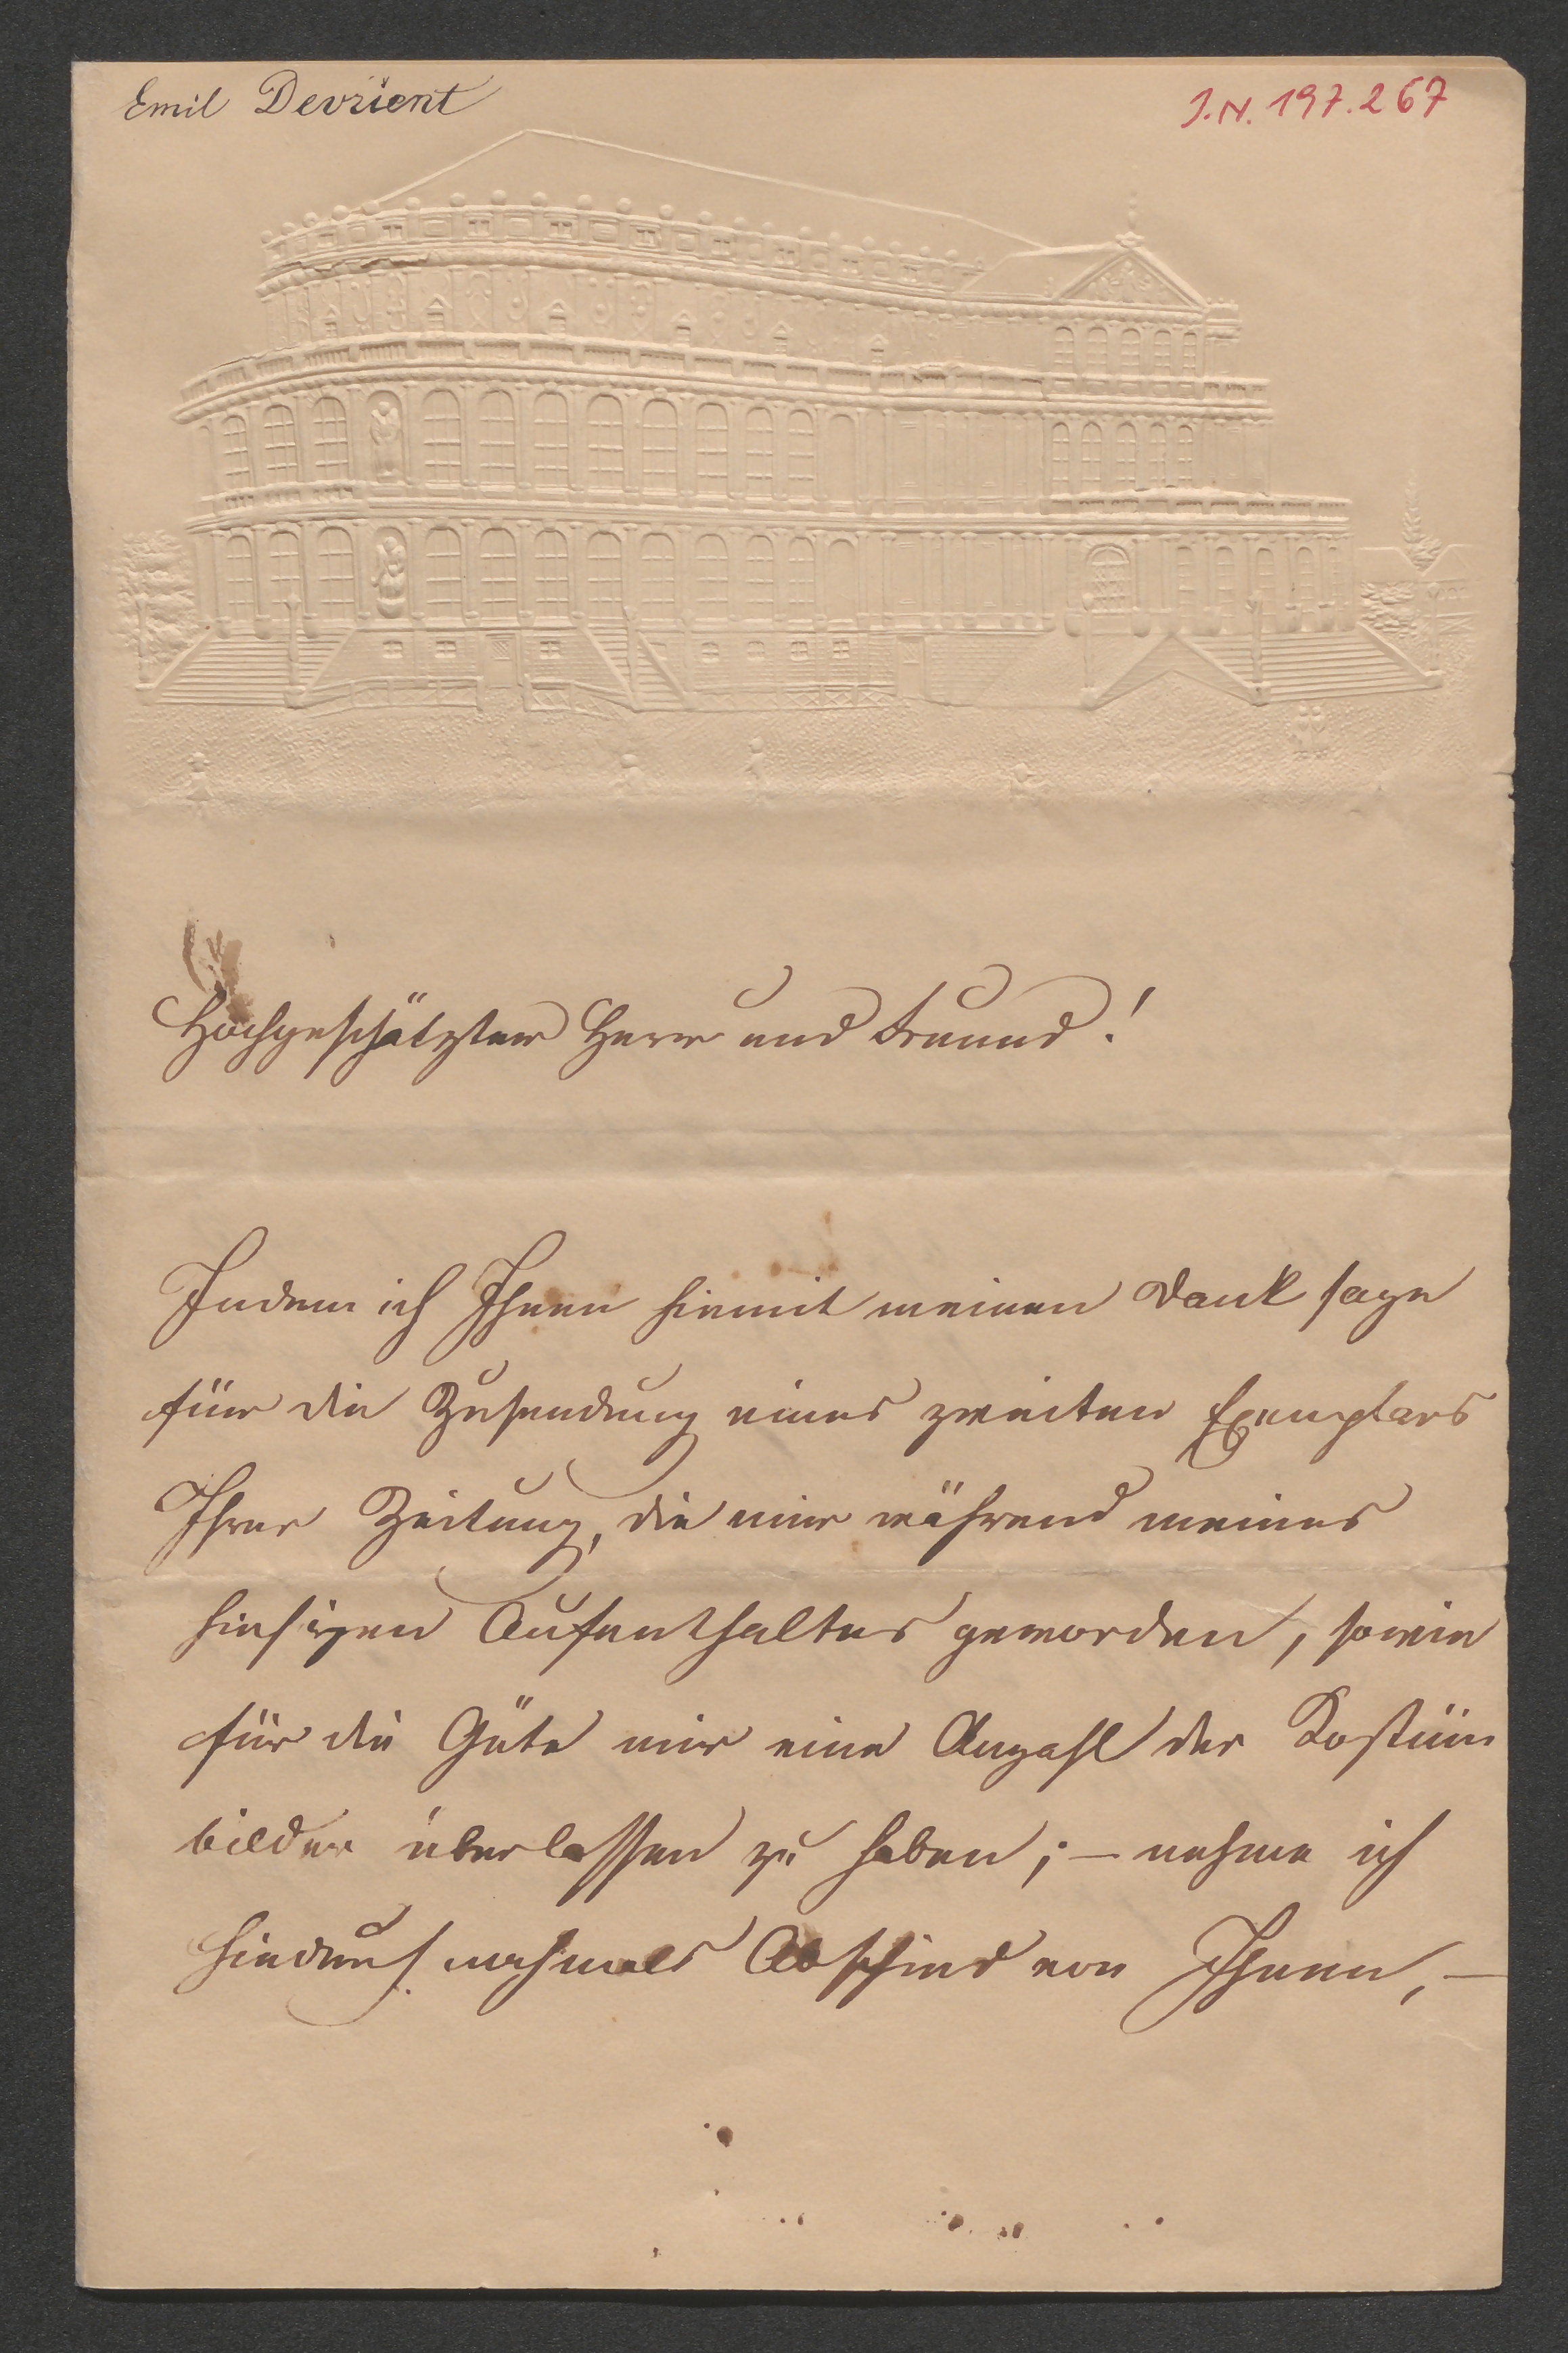 Emil Devrient
I.N. 197.267
Hochgeschätzter Herr und Freund!
Indem ich Ihnen hiemit meinen Dank sage
für die Zusendung eines zweiten Exemplars
Ihrer Zeitung, die mir während meines
hiesigen Aufenthaltes geworden, sowie
für die Güte mir eine Anzahl der Kostüm
bilder überlassen zu haben; – nehme ich
hiedurch nochmals Abschied von Ihnen, –